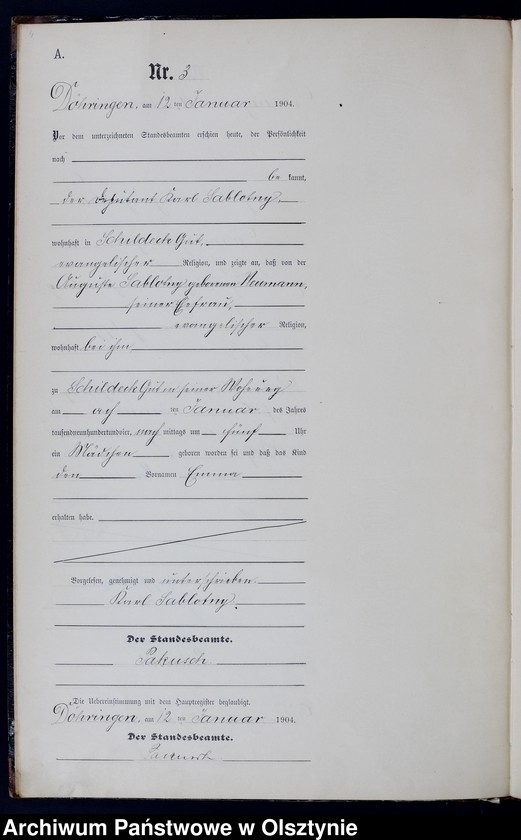 A.
Nr. 3
Döhringen, am 12 ten Januar 1904.
Vor dem unterzeichneten Standesbeamten erschien heute, der Persönlichkeit
nach
be kannt,
der Karl Sablotny
wohnhaft in Schildeck Gut,
evangelischer Religion, und zeigte an, daß von der
Auguste Sablotny geborenen Neumann,
seiner Eefrau,
evangelischer Religion,
wohnhaft bei ihm
zu Schildeck Gut in seiner
am ach ten Januar des Jahres
tausendneunhundertundvier, nach mittags um fünf Uhr
ein Mädchen geboren worden sei und daß das Kind
den Vornamen Emma
erhalten habe.
Vorgelesen, genehmigt und unterschrieben.
Karl Sablotny.
Der Standesbeamte.
Pakusch
Die Uebereinstimmung mit dem Hauptregister beglaubigt.
Döhringen, am 12 ten Januar 1904.
Der Standesbeamte.
Archiwum Państwowe w Olsztynie